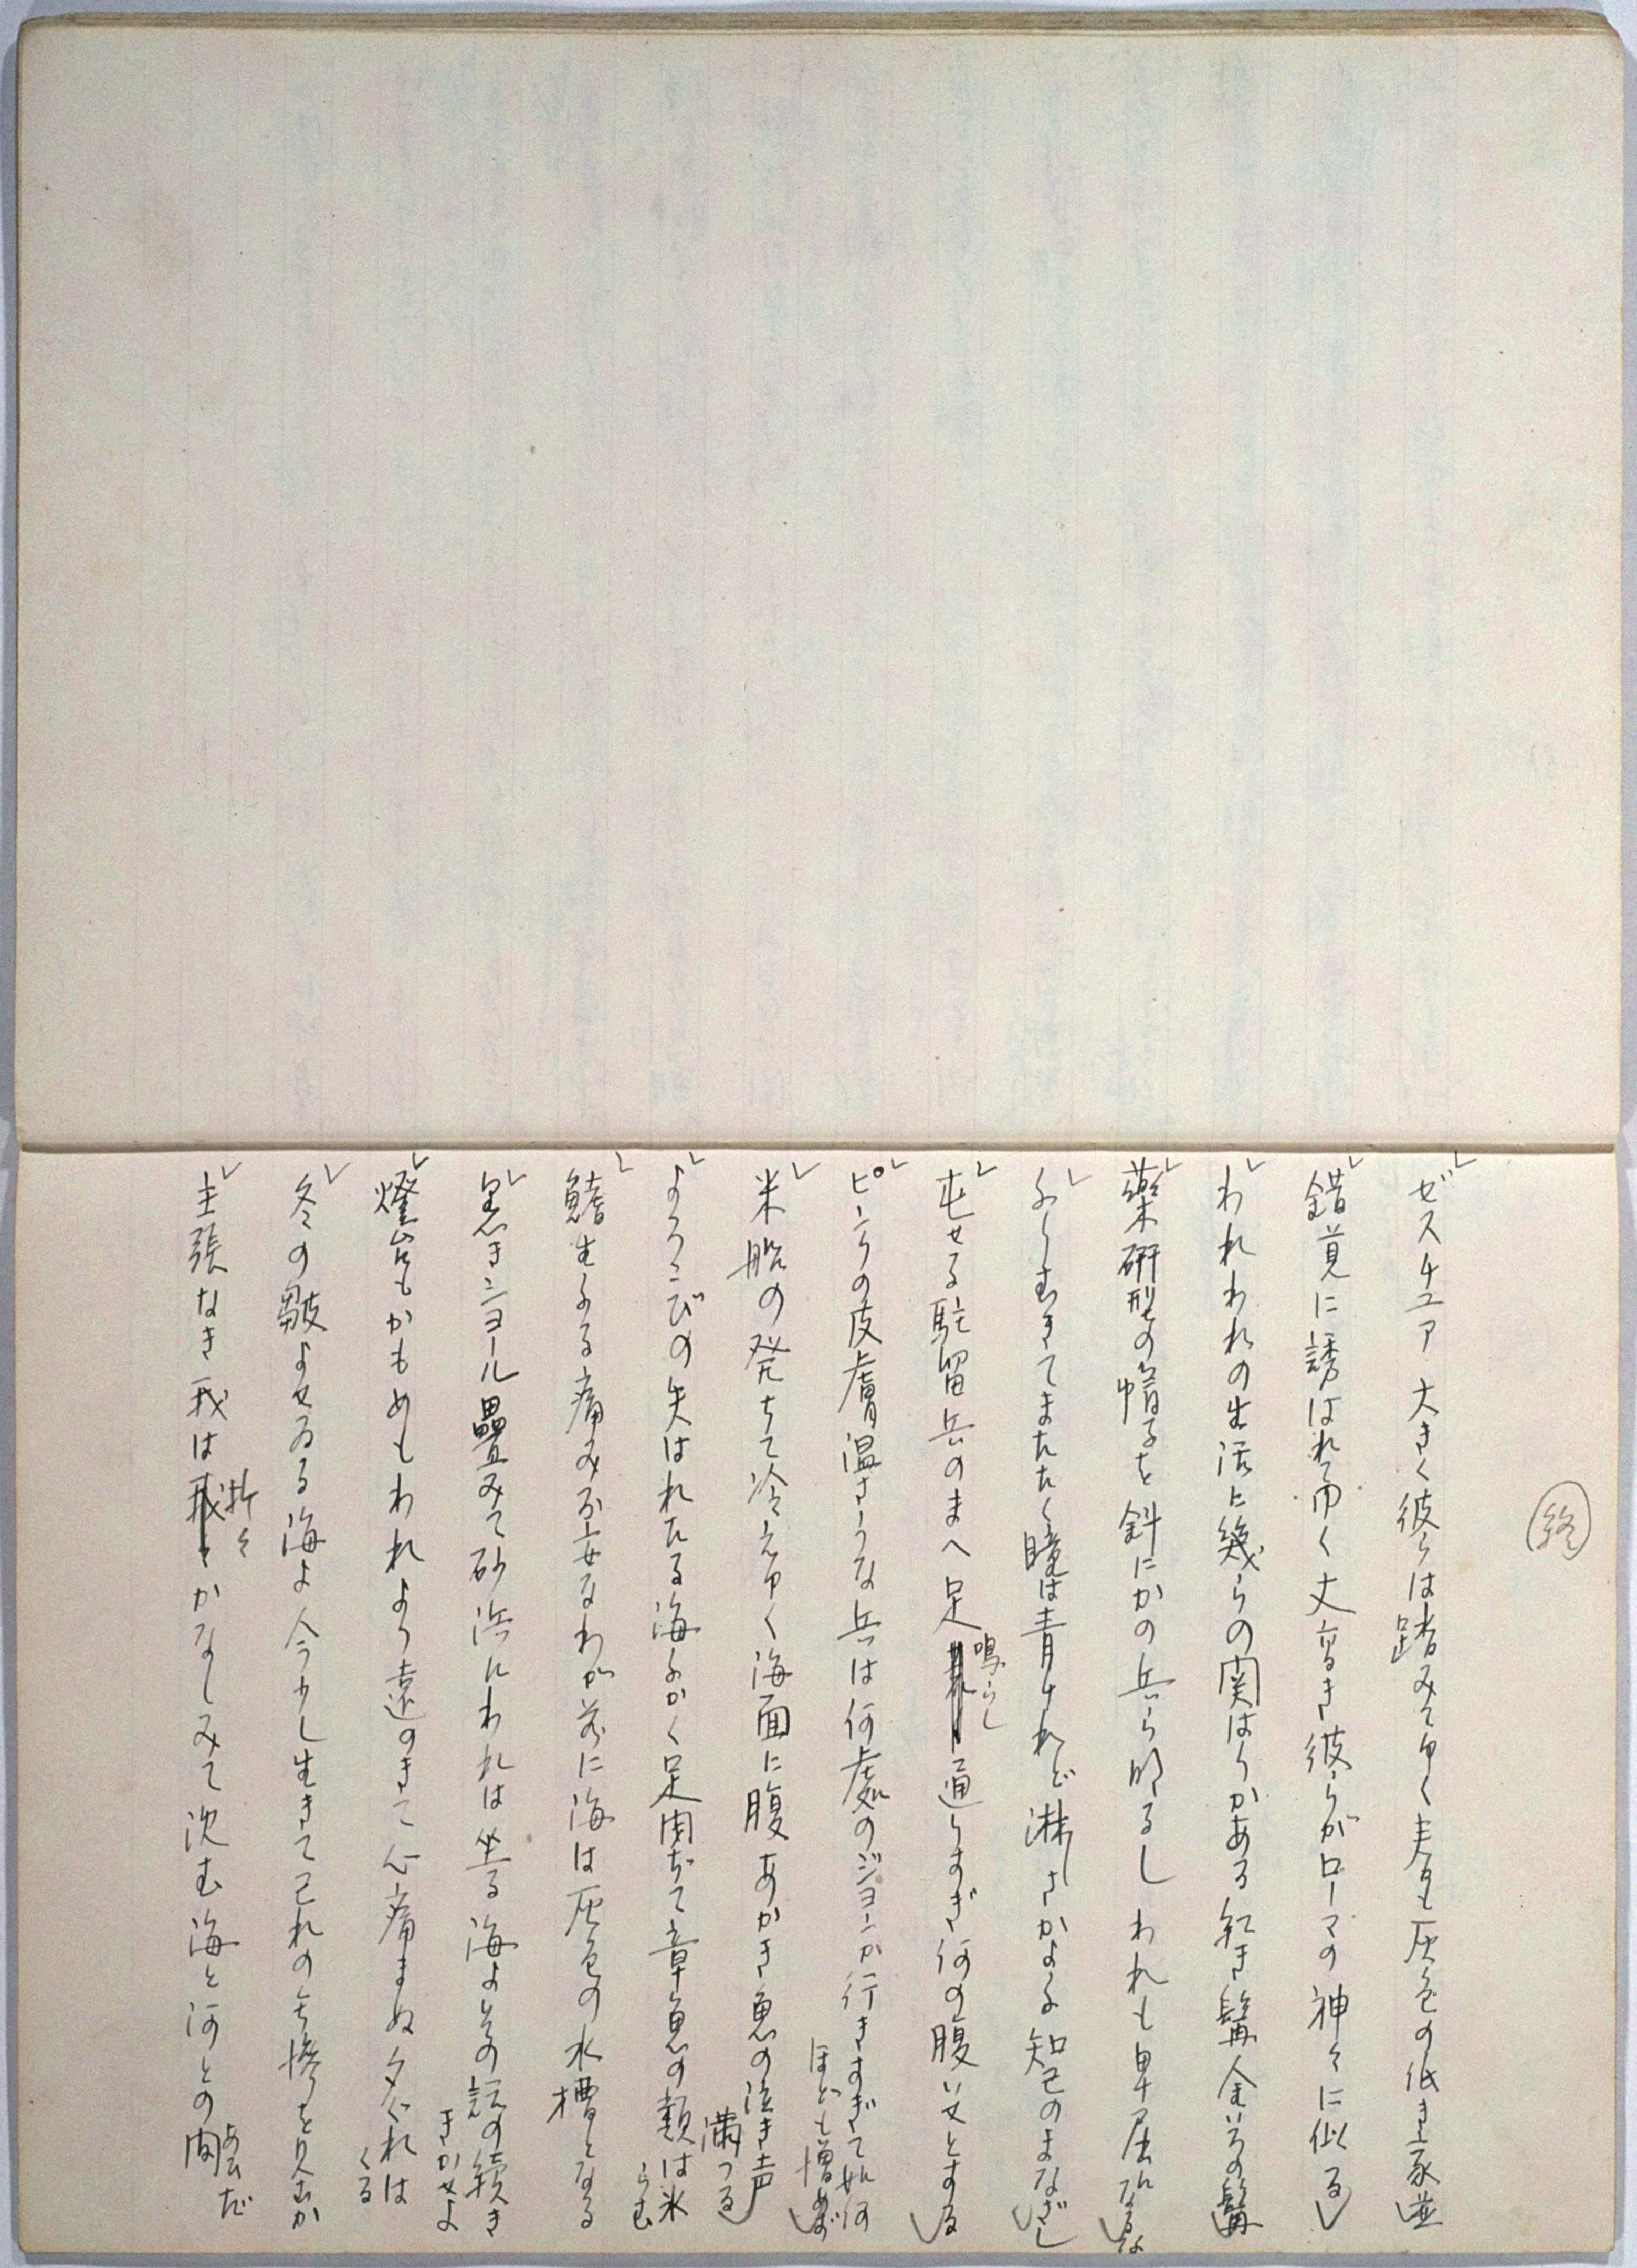 終
ゼスチュア大きく彼らは踏みてゆく まち灰色の低き家並
錯覚に誘はれてゆく丈高き彼らがローマの神々に似る
われわれの生活と幾らの関はりかある紅き髯金いろの髯
薬研型の帽子を斜にかの兵ら明るし われも卑屈になるな
ふりむきてまたたく瞳は青けれど淋しさかよふ知己のまなざし
屯せる駐留兵のまへ足鳴らし通りすぎ何の腹いせとする
ピンクの皮膚温さうな兵は何処のジョンか行きすぎて如何
ほども憎めず
米船の発ちて冷えゆく海面に腹あかき魚の泣き声
満つる
よろこびの失はれたる海ふかく足閉ぢて章魚の類は氷
らむ
鰭生ふる痛み不安なわが前に海は灰色の水槽となる
黒きショール畳みて砂浜にわれは坐る海よその話の続き
きかせよ
燈台もかもめもわれより遠のきて心痛まぬ夕ぐれは
くる
冬の皺よせゐる海よ今少し生きて己れの無惨を見むか
主張なき我は折々かなしみて沈む海と河との間
あひだ